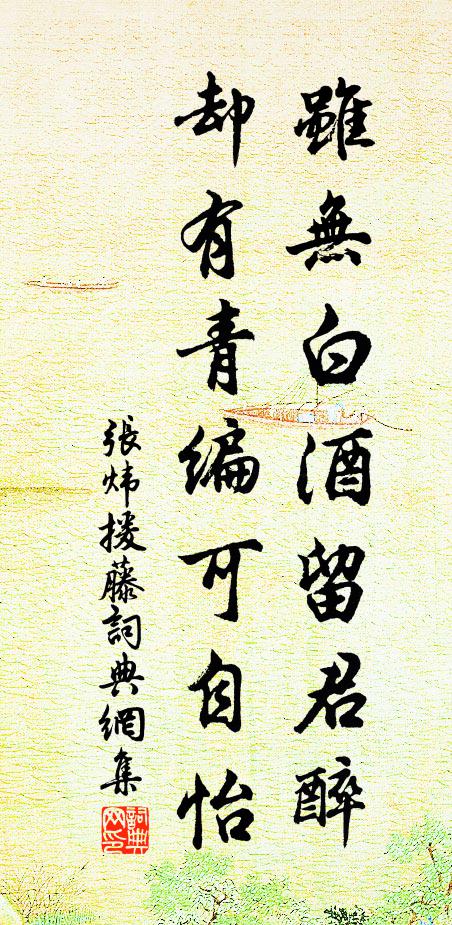 雖無白酒留君醉
却有青編可自怡
張煒援藤詞典網集
詞典網印